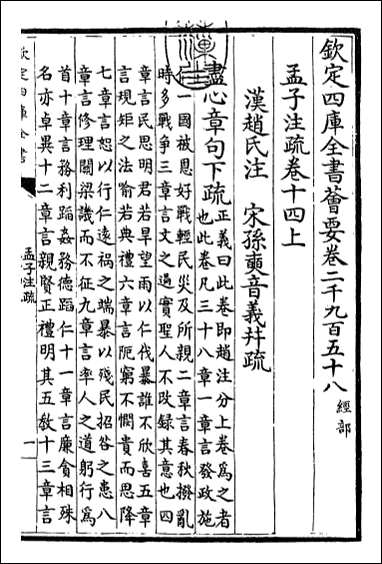 欽定四庫全書薈要卷二千九百五十八 經部
孟子注疏卷十四上
漢趙氏注 宋孫奭音義并疏
盡心章句下疏
正義曰此卷即趙注分上卷爲之者
也此卷凡三十八章一章言發政施
仁一國被恩好戰輕民災及所親二章言春秋撥亂
時多戰爭三章言文之過實聖人不改録其意也四
章言民思明君若旱望雨以仁伐暴誰不欣喜五章
言規矩之法喻若典禮六章言阨窮不憫貴而思降
七章言恕以行仁遠禍之端暴以殘民招咎之患八
章言修理關梁譏而不征九章言率人之道躬行爲
首十章言務利蹈姦務德蹈仁十一章言廉貪相殊
名亦卓異十二章言親賢正禮明其五教十三章言
欽定四庫全書
孟子注疏
一